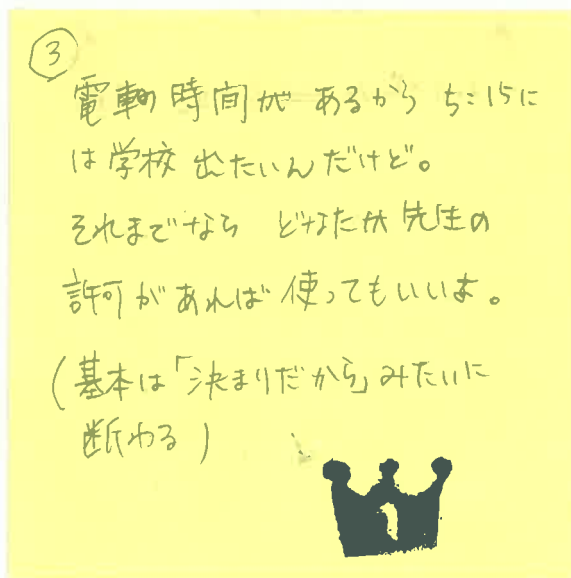 ③
電車の時間が あるから 5:15に
は学校 出たいんだけど。
それまでなら どなたか 先生の
許可があれば 使ってもいいよ。
(基本は「決まりだから」みたいに
断わる)